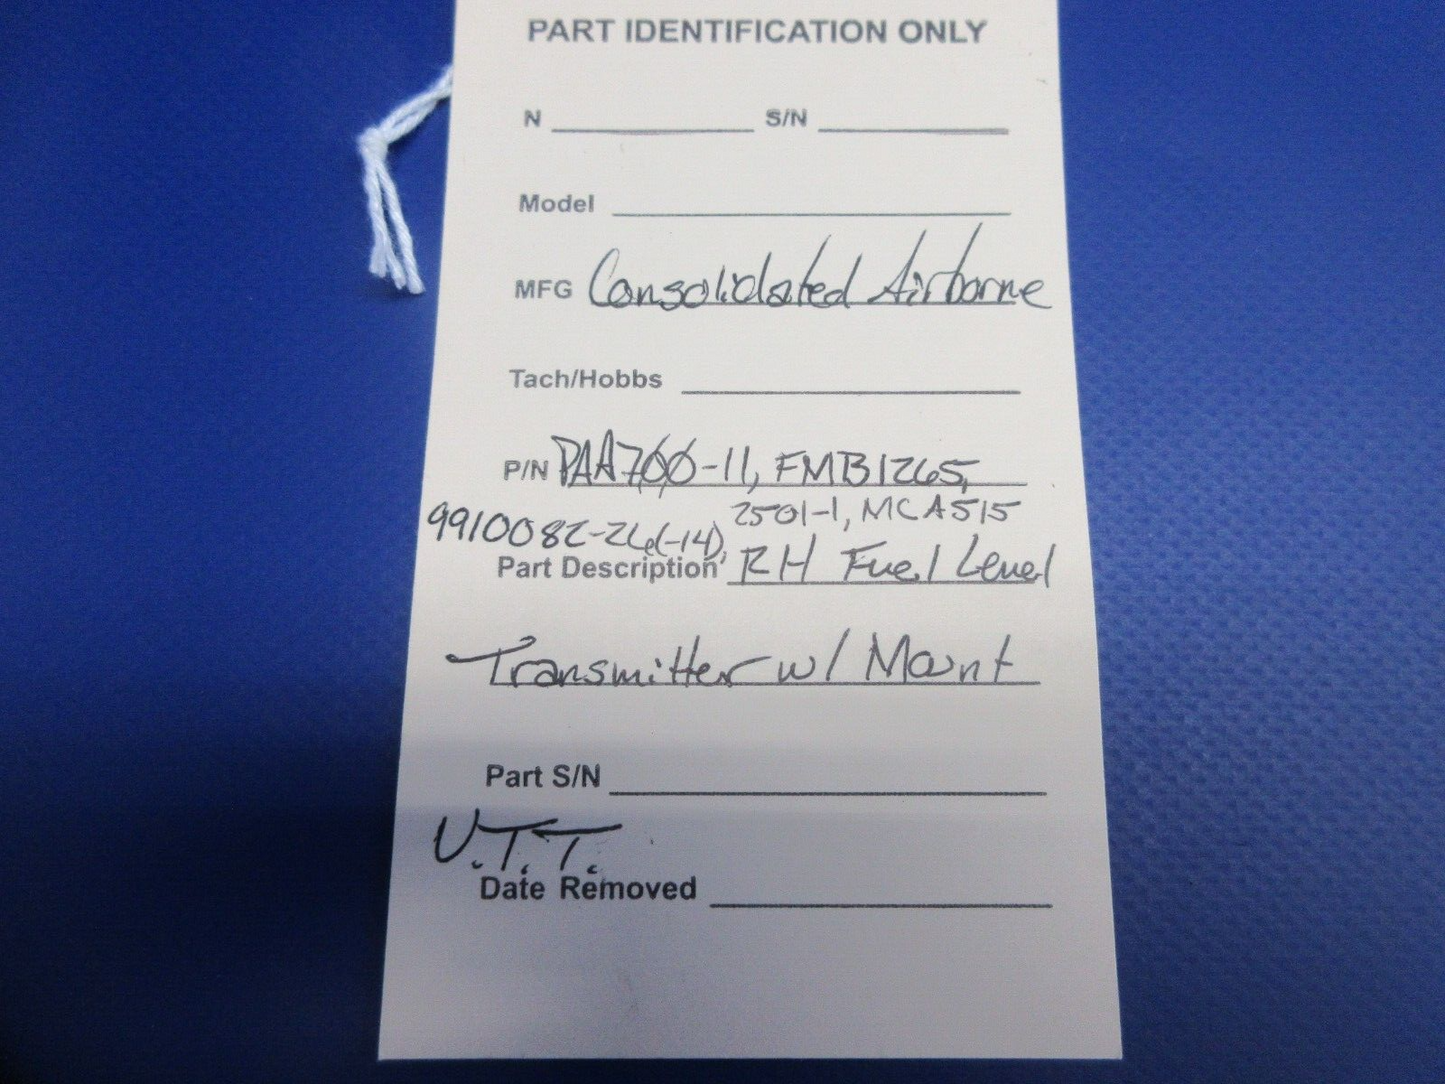 PART IDENTIFICATION ONLY
N S/N
Model
MFG Consolidated Airborne
Tach/Hobbs
P/N PAA700-11, FMB1265,
2501-1, MCA515
9910082-26(-14),
Part Description RH Fuel Level
Transmitter w/ Mount
Part S/N
U.T.T.
Date Removed